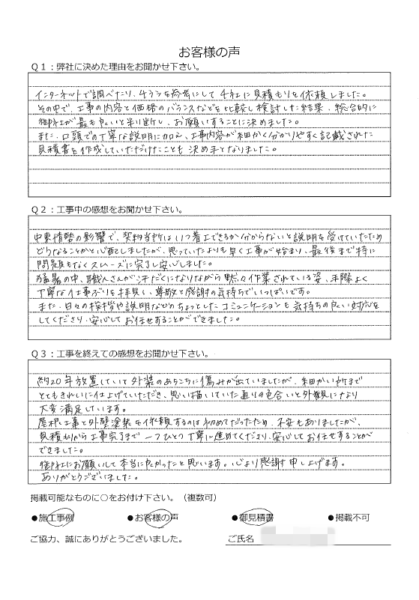 お客様の声
Q1：弊社に決めた理由をお聞かせ下さい。
インターネットで調べたり、チラシを参考にして4社に見積もりを依頼しました。
その中で、工事の内容と価格のバランスなどを比較し検討した結果、総合的に
御社が最も良いと判断し、お願いすることに決めました。
また、口頭での丁寧な説明に加え、工事内容が細かく分かりやすく記載された
見積書を作成していただけたことも決め手となりました。
Q2：工事中の感想をお聞かせ下さい。
中東情勢の影響で、契約当初はいつ着工できるか分からないと説明を受けていたため
どうなるかと心配しましたが、思っていたよりも早く工事が始まり、最後まで特に
問題もなくスムーズに完了し安心しました。
の中、職人さんが汗だくになりながら黙々と作業されている姿、手際よく
丁寧な仕事ぶりを拝見し、尊敬と感謝の気持ちでいっぱいです。
また、日々の挨拶や説明などのちょっとしたコミュニケーションも気持ちの良い対応を
してくださり、安心してお任せすることができました。
Q3：工事を終えての感想をお聞かせ下さい。
約20年放置していて外装のあちこちに傷みが出ていましたが、細かい所まで
とてもきれいに仕上げていただき、思い描いていた通りの色合いと外観になり
大変満足しています。
屋根工事と外壁塗装を依頼するのは初めてだったため、不安もありましたが、
見積りから工事完了まで一つひとつ丁寧に進めてくださり、安心してお任せすることが
できました。
御社にお願いして本当に良かったと思います。心より感謝申し上げます。
ありがとうございました。
掲載可能なものに○をお付け下さい。（複数可）
●施工事例 ●お客様の声 ●御見積書 ●掲載不可
ご協力、誠にありがとうございました。 ご氏名